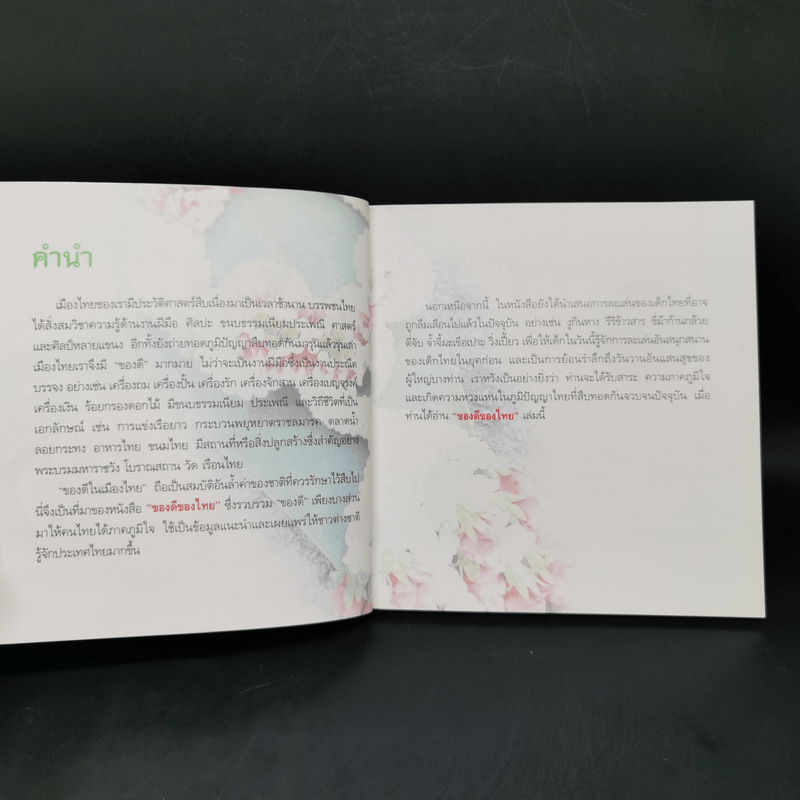 คำนำ
เมืองไทยของเรามีประวัติศาสตร์สืบเนื่องมาเป็นเวลาช้านาน บรรพชนไทย
ได้สั่งสมวิชาความรู้ด้านงานฝีมือ ศิลปะ ขนบธรรมเนียมประเพณี ศาสตร์
และศิลป์หลายแขนง อีกทั้งยังถ่ายทอดภูมิปัญญาสืบทอดกันมารุ่นแล้วรุ่นเล่า
เมืองไทยเราจึงมี “ของดี” มากมาย ไม่ว่าจะเป็นงานฝีมือซึ่งเป็นงานประณีต
บรรจง อย่างเช่น เครื่องถม เครื่องปั้น เครื่องรัก เครื่องจักสาน เครื่องเบญจรงค์
เครื่องเงิน ร้อยกรองดอกไม้ มีขนบธรรมเนียม ประเพณี และวิถีชีวิตที่เป็น
เอกลักษณ์ เช่น การแข่งเรือยาว กระบวนพยุหยาตราชลมารค ตลาดน้ำ
ลอยกระทง อาหารไทย ขนมไทย มีสถานที่หรือสิ่งปลูกสร้างซึ่งสำคัญอย่าง
พระบรมมหาราชวัง โบราณสถาน วัด เรือนไทย
“ของดีในเมืองไทย” ถือเป็นสมบัติอันล้ำค่าของชาติที่ควรรักษาไว้สืบไป
นี่จึงเป็นที่มาของหนังสือ “ของดีของไทย” ซึ่งรวบรวม “ของดี” เพียงบางส่วน
มาให้คนไทยได้ภาคภูมิใจ ใช้เป็นข้อมูลแนะนำและเผยแพร่ให้ชาวต่างชาติ
รู้จักประเทศไทยมากขึ้น
นอกเหนือจากนี้ ในหนังสือยังได้นำเสนอการละเล่นของเด็กไทยที่อาจ
ถูกลืมเลือนไปแล้วในปัจจุบัน อย่างเช่น งูกินหาง รีรีข้าวสาร ขี่ม้าก้านกล้วย
ตี่จับ จ้ำจี้มะเขือเปาะ วิ่งเปี้ยว เพื่อให้เด็กในวันนี้รู้จักการละเล่นอันสนุกสนาน
ของเด็กไทยในยุคก่อน และเป็นการย้อนรำลึกถึงวันวานอันแสนสุขของ
ผู้ใหญ่บางท่าน เราหวังเป็นอย่างยิ่งว่า ท่านจะได้รับสาระ ความภาคภูมิใจ
และเกิดความหวงแหนในภูมิปัญญาไทยที่สืบทอดกันจวบจนปัจจุบัน เมื่อ
ท่านได้อ่าน “ของดีของไทย” เล่มนี้